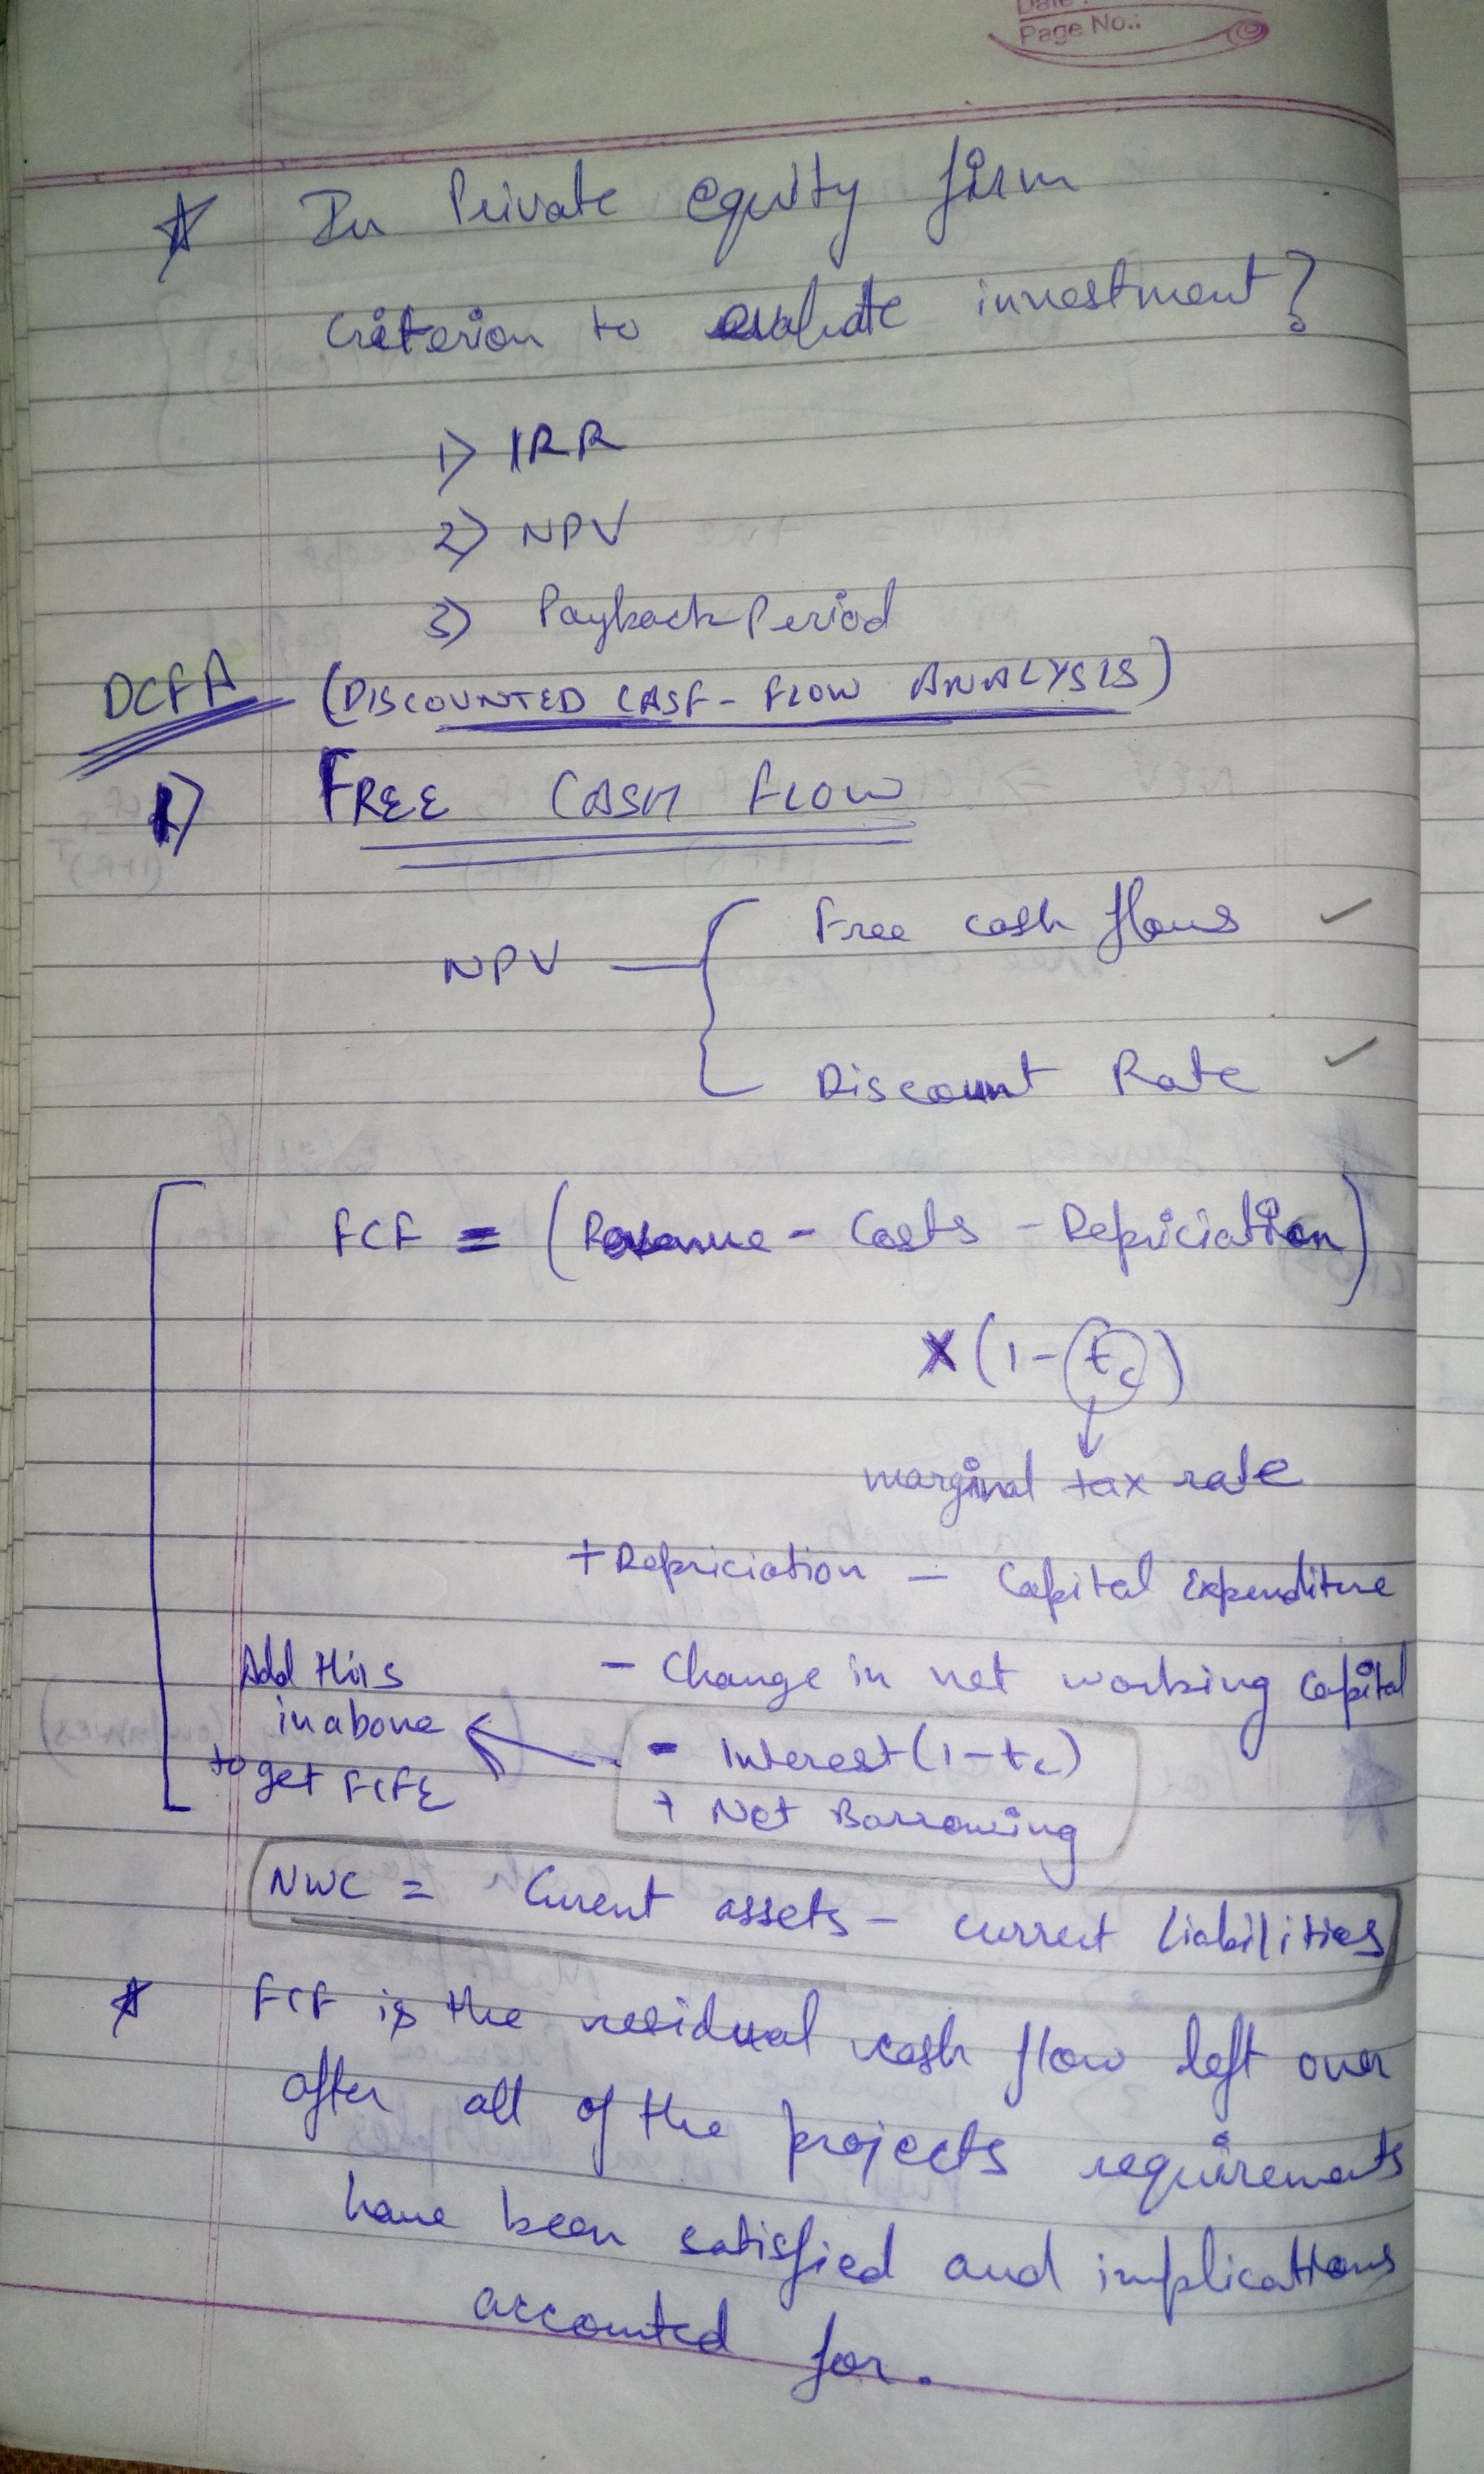 Date :
Page No.:
☆ In Private equity firm
criterion to evaluate investment?
1) IRR
2) NPV
3) Payback Period
DCFA (DISCOUNTED CASF-FLOW ANALYSIS)
1) FREE CASH FLOW
NPV — { Free cash flows ✓
Discount Rate ✓
FCF = (Revenue - Costs - Depriciation)
X (1-tc)
↓
marginal tax rate
+ Depriciation — Capital Expenditure
- Change in net working capital
Add this
in above
to get FCFE
- Interest (1-tc)
+ Net Borrowing
NWC = Current assets - current liabilities
☆ FCF is the residual cash flow left over
after all of the projects requirements
have been satisfied and implications
accounted for.